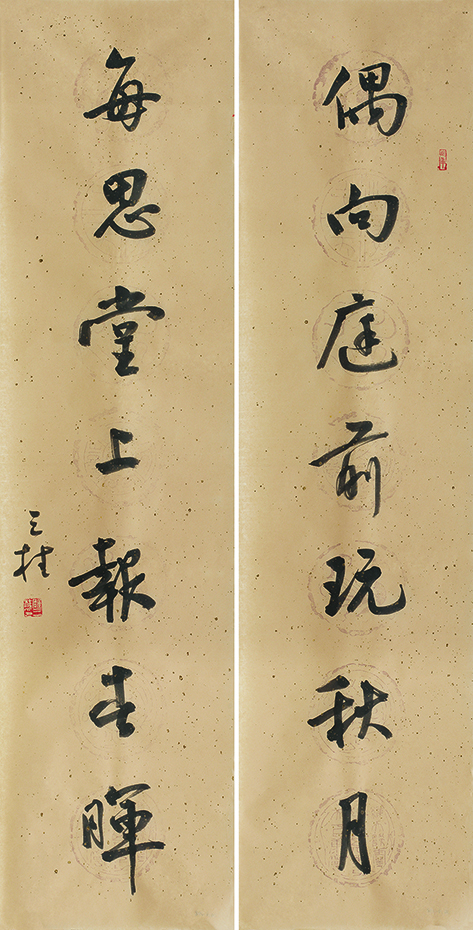 偶向庭前玩秋月
每思堂上報春暉